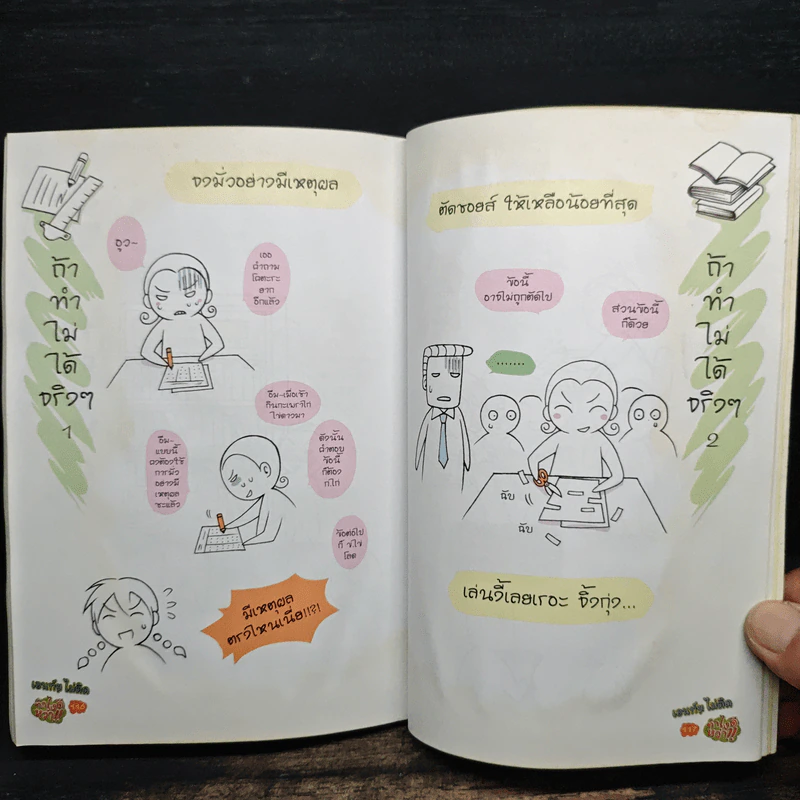 จงมั่วอย่างมีเหตุผล
ถ้า
ทำ
ไม่
ได้
จริงๆ
1
อูว~
เจอ
คำถาม
โคตะระ
ยาก
อีกแล้ว
อืม-เมื่อเช้า
กินกะเพราไก่
ไข่ดาวมา
อืม-
แบบนี้
คงต้องใช้
การมั่ว
อย่างมี
เหตุผล
ซะแล้ว
ดังนั้น
คำตอบ
ข้อนี้
ก็ต้อง
ก.ไก่
ข้อต่อไป
ก็ ข.ไข่
โลด
มีเหตุผล
ตรงไหนเนี่ย!!?!
เอนท์ฯ ไม่ติด
ตัดชอยส์ ให้เหลือน้อยที่สุด
ถ้า
ทำ
ไม่
ได้
จริงๆ
2
ข้อนี้
อาจไม่ถูกตัดไป
ส่วนข้อนี้
ก็ด้วย
.......
ฉับ
ฉับ
เล่นงี้เลยเรอะ จิ้งกุ่ง...
เอนท์ฯ ไม่ติด